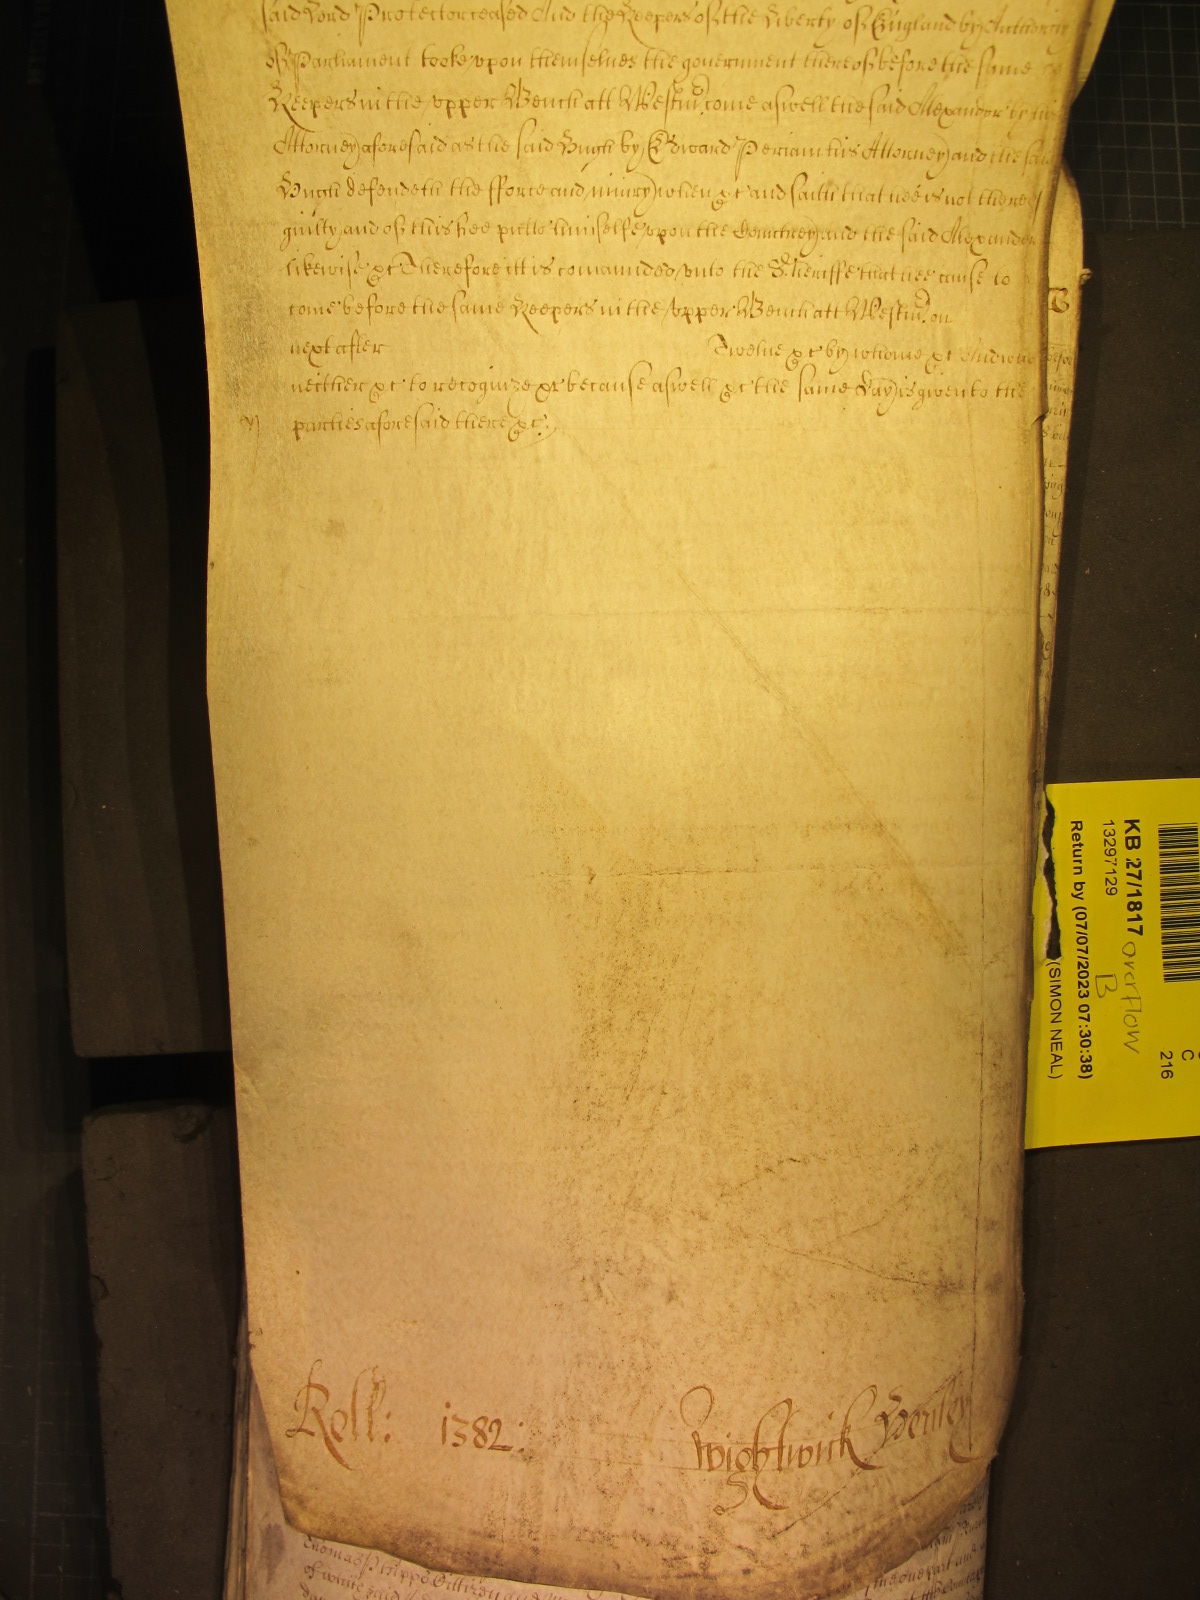 said Lord Protector ceased And the Keepers of the Liberty of England by Authority
of Parliament tooke upon themselves the government thereof before the same
Keepers in the upper Bench att Westm come aswell the said Alexander by his
Attorney aforesaid as the said Hugh by Edward Periam his Attorney and the said
Hugh defendeth the fforce and iniury when &c and saith that hee is not thereof
guilty and of this hee putts himselfe upon the Countrey and the said Alexander
likewise &c Therefore itt is comannded unto the Sheriffe that hee cause to
come before the same Keepers in the upper Bench att Westm on
next after Twelue &c by whome &c And who
neither &c to recognize &c because aswell &c the same day is given to the
parties aforesaid there &c
Roll: 1382:
Wightwick Henley
KB 27/1817 overflow
B
13297129
Return by (07/07/2023 07:30:38)
(SIMON NEAL)
C
216
Thomas
of white